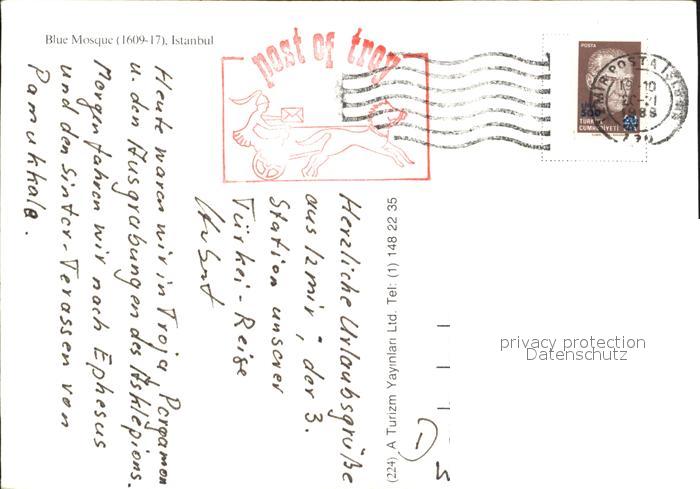 Blue Mosque (1609-17), Istanbul
post of troy
POSTA
500
TÜRKİYE
CUMHURİYETİ
POSTA
Herzliche Urlaubsgrüße
aus Izmir, der 3.
Station unserer
Türkei-Reise
Heute waren wir in Troja, Pergamon
u. den Ausgrabungen des Asklepions.
Morgen fahren wir nach Ephesus
und den Sinter-Terassen von
Pamukkale.
(224) A Turizm Yayınları Ltd. Tel: (1) 148 22 35
privacy protection
Datenschutz